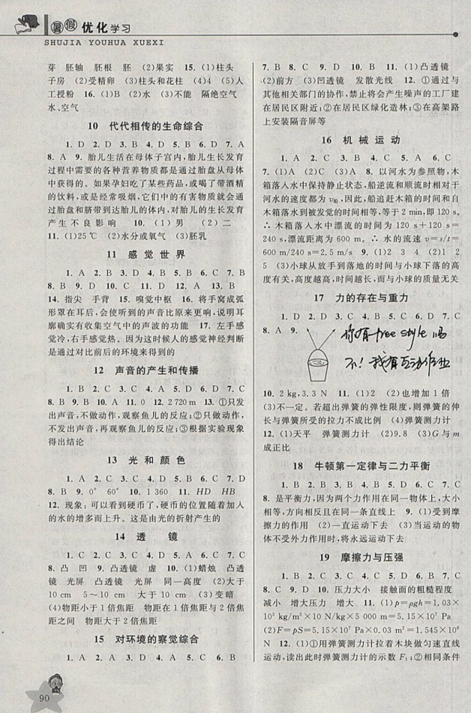 暑假 优化学习
SHUJIA YOUHUA XUEXI
芽 胚轴 胚根 胚 (2)果实 15. (1)柱头
子房 (2)受精卵 (3)柱头和花柱 (4)4 (5)人
工授粉 16. (1)B (2)水 (3)不能 隔绝空气
水、空气
10 代代相传的生命综合
1. D 2. D 3. D 4. B 5. D 6. D 7. A
8. A 9. 胎儿生活在母体子宫内,胎儿生长发育
过程中需要的各种营养物质都是通过胎盘从母体
中获得的。如果孕妇吃了某些药品,或喝了带酒精
的饮料,或是经常吸烟,它们中的有害物质就会通
过胎盘和脐带到达胎儿的体内,对胎儿的生长发育
产生不良影响 10. (1)男 (2)二
11. (1)25℃ (2)水分或氧气 (3)胚乳
11 感觉世界
1. A 2. B 3. D 4. B 5. D 6. C 7. B
8. B 9. D 10. C 11. D 12. A 13. B
14. 指尖 手背 15. 嗅觉中枢 16. 将手窝成弧
形罩在耳后,会使听到的声音比原来更响,说明耳
廓确实有收集空气中的声波的功能 17. 左手感
觉冷,右手感觉热。因为这时候人的感觉神经判断
是通过对比前后的环境来得到的
12 声音的产生和传播
1. B 2. C 3. C 4. A 5. D 6. B 7. C
8. B 9. B 10. A 11. 0 12. 2 720 m 13. ①只发
出声音,不做动作,观察鱼儿的反应;②只做动作,
不发出声音,再观察鱼儿的反应;③根据实验现象
得出结论
13 光和颜色
1. C 2. C 3. A 4. D 5. D 6. C 7. D
8. B 9. 0° 60° 10. 1 360 11. HD HB
12. 现象:可以看到硬币了,硬币的位置随着加入
的水的增多而上升。这是由光的折射产生的
14 透镜
1. C 2. D 3. D 4. A 5. A 6. C 7. C
8. 凸 凹 9. 凸透镜 虚 10. (1)蜡烛 凸透
镜 光屏 凸透镜 光屏 同一高度 (2)大于
10 cm 5~10 cm 大于10 cm (3)变暗
(4)物距小于1倍焦距 物距在1倍焦距与2倍焦
距之间 物距大于2倍焦距
15 对环境的察觉综合
1. A 2. A 3. D 4. A 5. C 6. B
7. B 8. C 9. D 10. B 11. (1)凸透镜
(2)前方 (3)凹透镜 发散光线 12. ①通过与
其他相关部门的协作,禁止将会产生噪声的工厂建
在居民区附近;②在居民区绿化造林;③在高架路
上安装隔音屏等
16 机械运动
1. A 2. C 3. B 4. C 5. C 6. A
7. (1)A (2)C (3)A 8. 以河水为参照物,木
箱落入水中保持静止状态,船逆流和顺流时相对于
河水的速度都为
等于2 min,即120 s,
∴木箱落入水中漂流的时间为 120 s+120 s=
240 s,漂流距离为 600 m,∴水的流速
600 m/240 s=2.5 m/s 9. (1)2 3 4 (2)1 2
5 (3)小球从放手到落地的时间与小球下落的高
度有关,高度越高,时间越长,而与小球的质量无关
17 力的存在与重力
8. A 9.
你有freestyle吗
不!我有互动作业
10. 2 kg,3.3 N 11. (1)2 (2)也增加1倍
(3)不一定。若超出弹簧的弹性限度,则弹簧的伸
长与弹簧所受的拉力不成比例 (4)弹簧测力计
12. (1)天平 弹簧测力计 (2)9.8 (3)G与m
成正比
18 牛顿第一定律与二力平衡
8. 是平衡力,因为两个力作用在同一物体上,大小
相等,方向相反且在同一条直线上 9. (1)受到摩
擦力的作用 (2)一直运动下去 (3)当运动的物
体不受外力作用时,将永远运动下去
19 摩擦力与压强
8. C 9. D 10. 压力大小 接触面的粗糙程度
减小 增大压力 增大 11. (1)p=ρgh=1.03×
10³ kg/m³×10 N/kg×5 000 m=5.15×10⁷ Pa
(2)F=pS=5.15×10⁷ Pa×0.03 m²=1.545×10⁶
N 12. (1)①用弹簧测力计拉着木块做匀速直线
运动,读出此时弹簧测力计的示数F;②相同条件
90